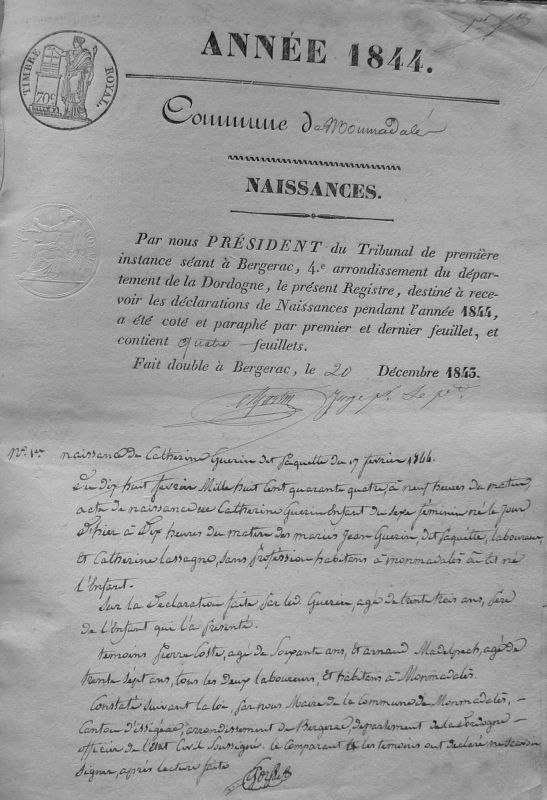 TIMBRE ROYAL
70c
ANNÉE 1844.
Commune de Monmadalés
NAISSANCES.
Par nous PRÉSIDENT du Tribunal de première
instance séant à Bergerac, 4.e arrondissement du dépar-
tement de la Dordogne, le présent Registre, destiné à rece-
voir les déclarations de Naissances pendant l'année 1844,
a été coté et paraphé par premier et dernier feuillet, et
contient quatre feuillets.
Fait double à Bergerac, le 20 Décembre 1843.
Juge pr. Le pt.
No. 1er naissance de Catherine Guerin dit faquette du 17 fevrier 1844.
Du dix huit fevrier Mille huit Cent quarante quatre à neuf heures du matin
acte de naissance de Catherine Guerin Enfant du sexe feminin né le jour
D'hier à Dix heures du matin des mariés Jean Guerin, dit faquette, laboureur,
et Catherine Lassagne, sans profession habitans à monmadalés à lat né
l'Enfant.
Sur la Declaration faite par led. Guerin, agé de trente trois ans, père
de l'Enfant qui l'a présenté.
temoins pierre Coste, agé de Soixante ans, et arnaud Madelpech, agé de
trente sept ans, tous les deux laboureurs, et habitans à Monmadalés.
Constaté suivant la loi, par nous Maire de la Commune de Monmadalés,
Canton d'issigeac, arrondissement de Bergerac, departement de la Dordogne
officier de l'Etat Civil Soussigné. le Comparant et les temoins ont declaré ne savoir
Signer, après lecture faite